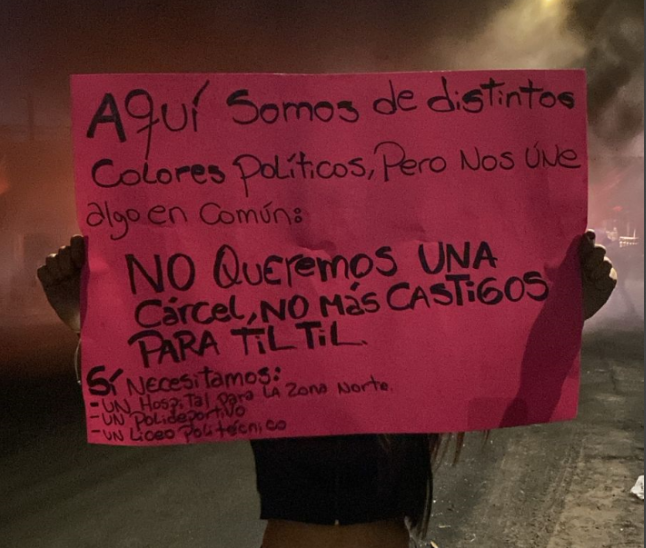 AQUÍ Somos de distintos
Colores Políticos, Pero Nos ÚNe
algo en Común:
NO QUeremos UNA
Cárcel, NO Más CASTiGOS
PARA TiL TiL.
SÍ NeCesitamos:
- UN HospiTal Para LA Zona Norte.
- UN Polideportivo
- UN Liceo PoliTécnico